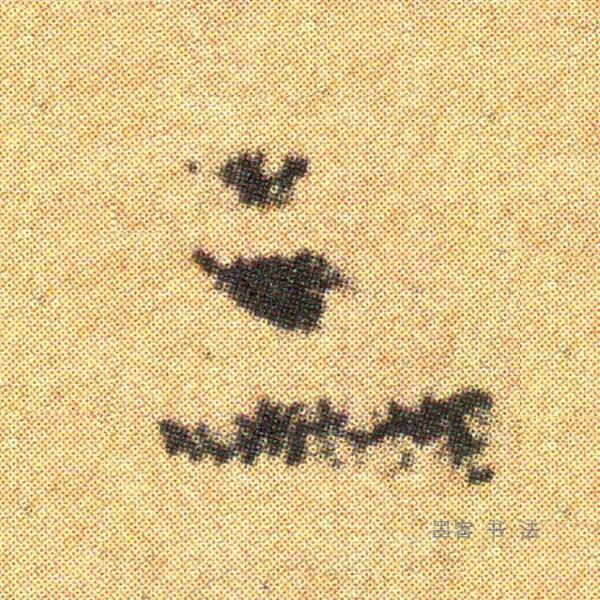 三
墨客书法